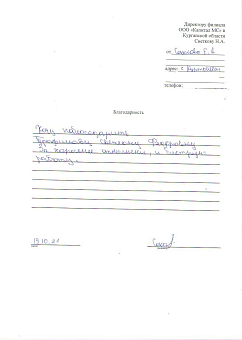 Директору филиала
ООО «Капитал МС» в
Курганской области
Снеткову Н.А.
от
адрес: с.
телефон:
Благодарность
Хочу поблагодарить
Трофимову Светлану Федоровну
за хорошее отношение, и быструю
работу.
13.10.21